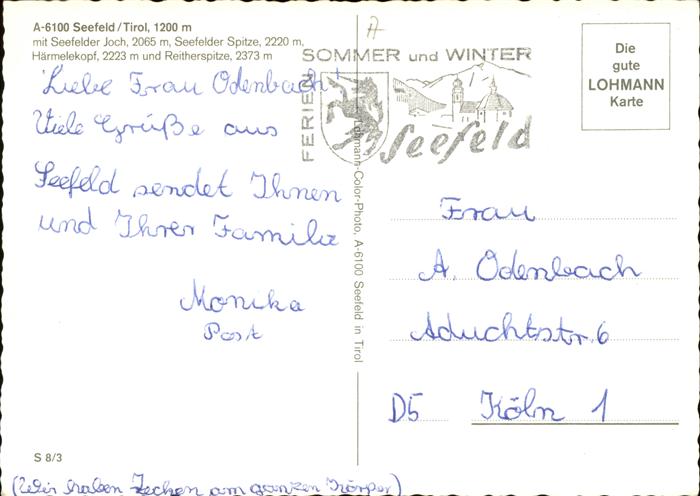 A-6100 Seefeld/Tirol, 1200 m
mit Seefelder Joch, 2065 m, Seefelder Spitze, 2220 m,
Härmelekopf, 2223 m und Reitherspitze, 2373 m
Liebe Frau Odenbach!
Viele Grüße aus
Seefeld sendet Ihnen
und Ihrer Familie
Monika
Post
S 8/3
(Wir haben Zecken am ganzen Körper)
Lohmann-Color-Photo, A-6100 Seefeld in Tirol
A
FERIEN
SOMMER und WINTER
Seefeld
Die
gute
LOHMANN
Karte
Frau
A. Odenbach
Aduchtstr. 6
D5 Köln 1